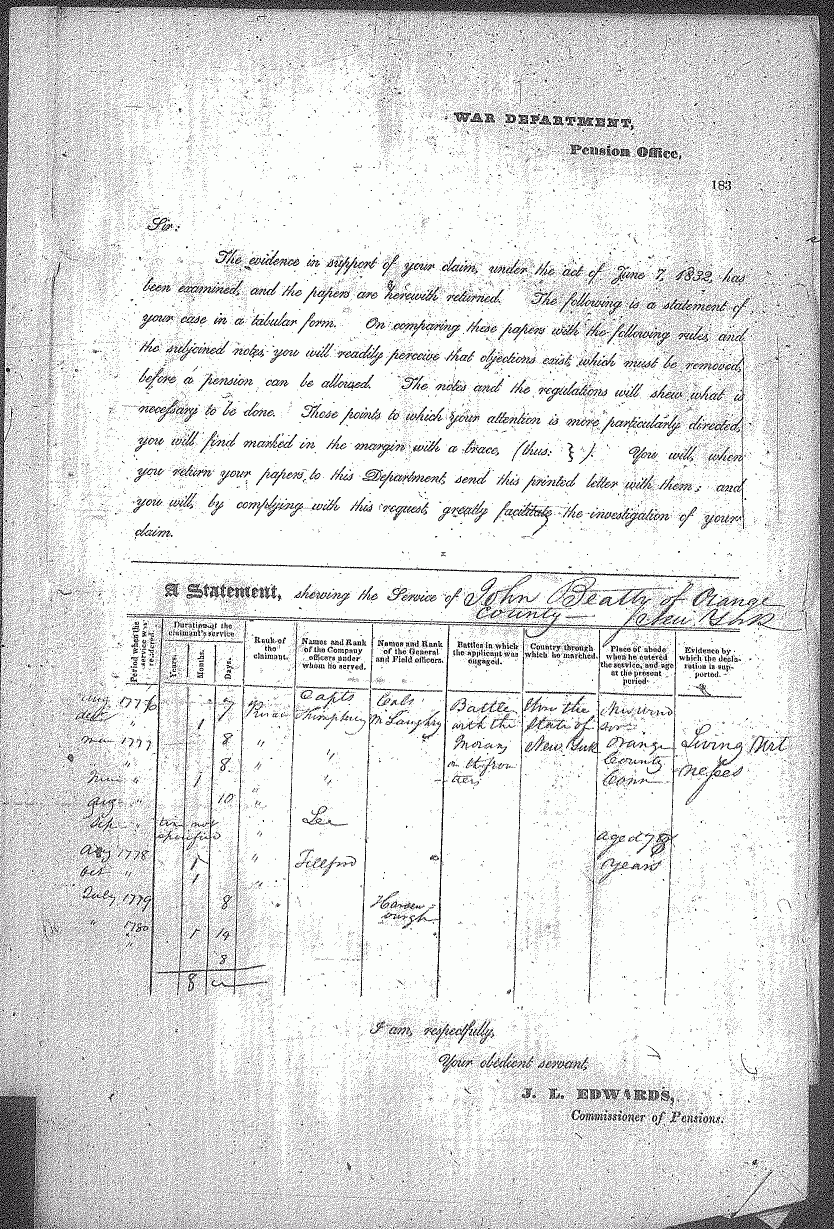 WAR DEPARTMENT,
Pension Office,
183
Sir:
The evidence in support of your claim, under the act of June 7, 1832, has
been examined, and the papers are herewith returned. The following is a statement of
your case in a tabular form. On comparing these papers with the following rules, and
the subjoined notes, you will readily perceive that objections exist, which must be removed,
before a pension can be allowed. The notes and the regulations will shew what is
necessary to be done. Those points to which your attention is more particularly directed,
you will find marked in the margin with a brace, (thus: } ). You will, when
you return your papers to this Department, send this printed letter with them; and
you will, by complying with this request, greatly facilitate the investigation of your
claim.
A Statement, shewing the Service of John Beatty of Orange
County New York
Period when the service was rendered.
Duration of the claimant's service
Years. Months. Days.
Rank of the claimant.
Names and Rank of the Company officers under whom he served.
Names and Rank of the General and Field officers.
Battles in which the applicant was engaged.
Country through which he marched.
Place of abode when he entered the service, and age at the present period.
Evidence by which the declaration is supported.
Aug 1776 7 Capts Cols Battle Thro the
" 1 Humphrey McLaughry with the State of
mar 1777 8 " " Indians New York Orange Living Wit
" 8 " " on the fron County nesses
" 1 " " tiers
aug " 10 "
Sep " time not Lee
specified " aged 78
Aug 1778 1 " Tillford years
Oct " 1 "
July 1779 8 Hasen=
" 1780 1 14 ough
" 8
8
I am, respectfully,
Your obedient servant,
J. L. EDWARDS,
Commissioner of Pensions.